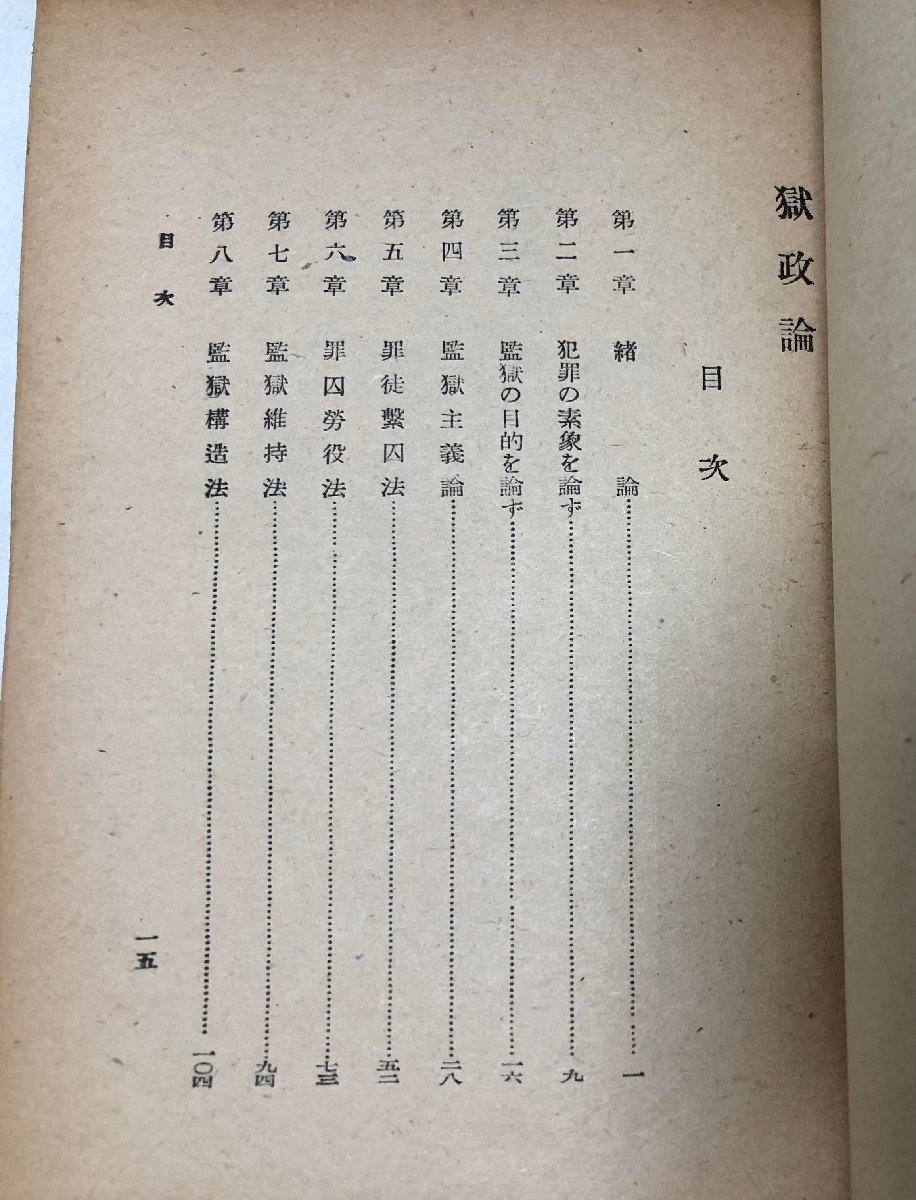 獄政論
目次
第一章 緒論……一
第二章 犯罪の素象を論ず……九
第三章 監獄の目的を論ず……一六
第四章 監獄主義論……二八
第五章 罪徒繫囚法……五二
第六章 罪囚勞役法……七三
第七章 監獄維持法……九四
第八章 監獄構造法……一〇四
目次
一五